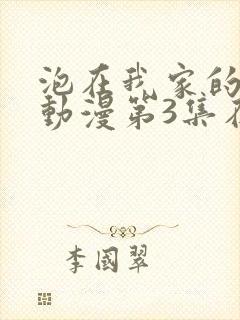 泡在我家的
動漫第3集在
李國翠